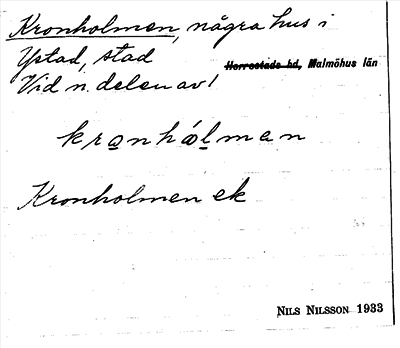 Kronholmen, några hus i
Ystad, stad
Herrestads hd, Malmöhus län
Vid n. delen av
kronhólman
Kronholmen ek
NILS NILSSON 1933